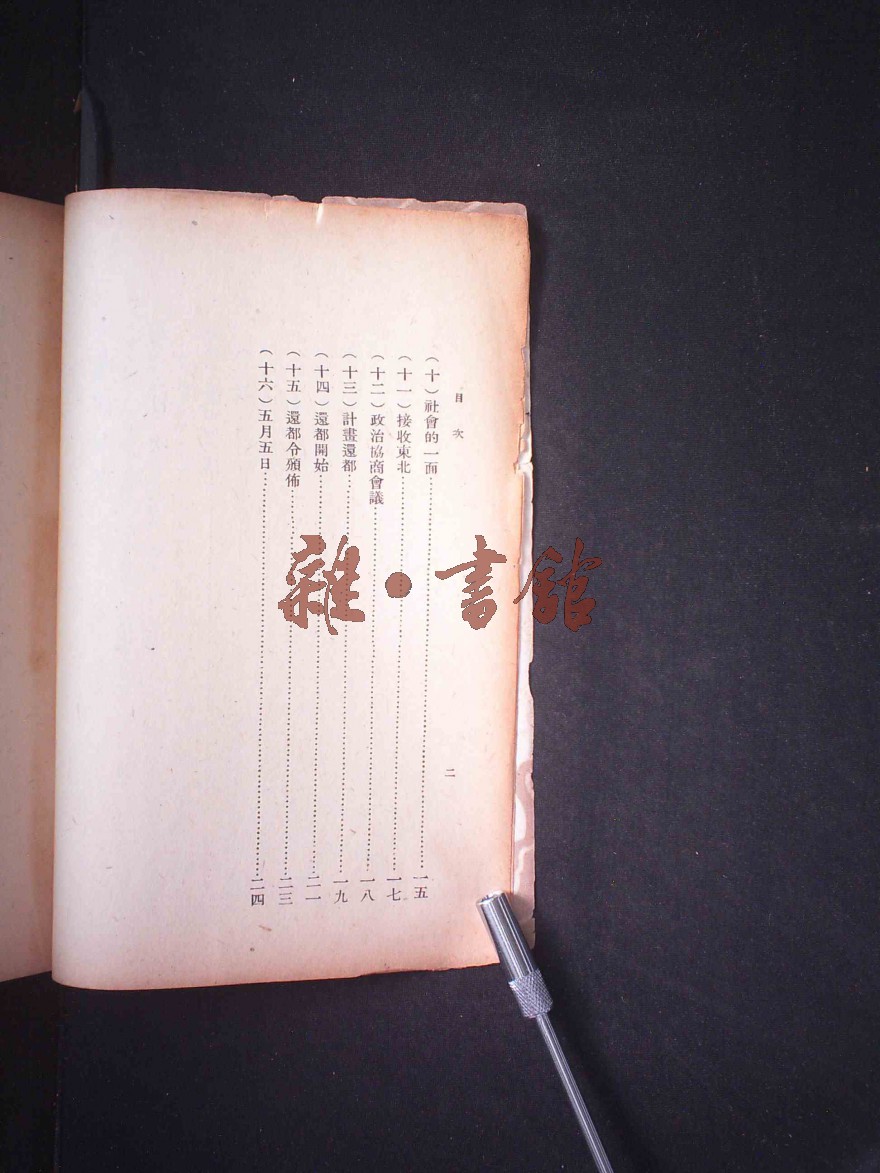 目次
二
（十）社會的一面……一五
（十一）接收東北……一七
（十二）政治協商會議……一八
（十三）計畫還都……一九
（十四）還都開始……二一
（十五）還都令頒佈……二三
（十六）五月五日……二四
雜·書館